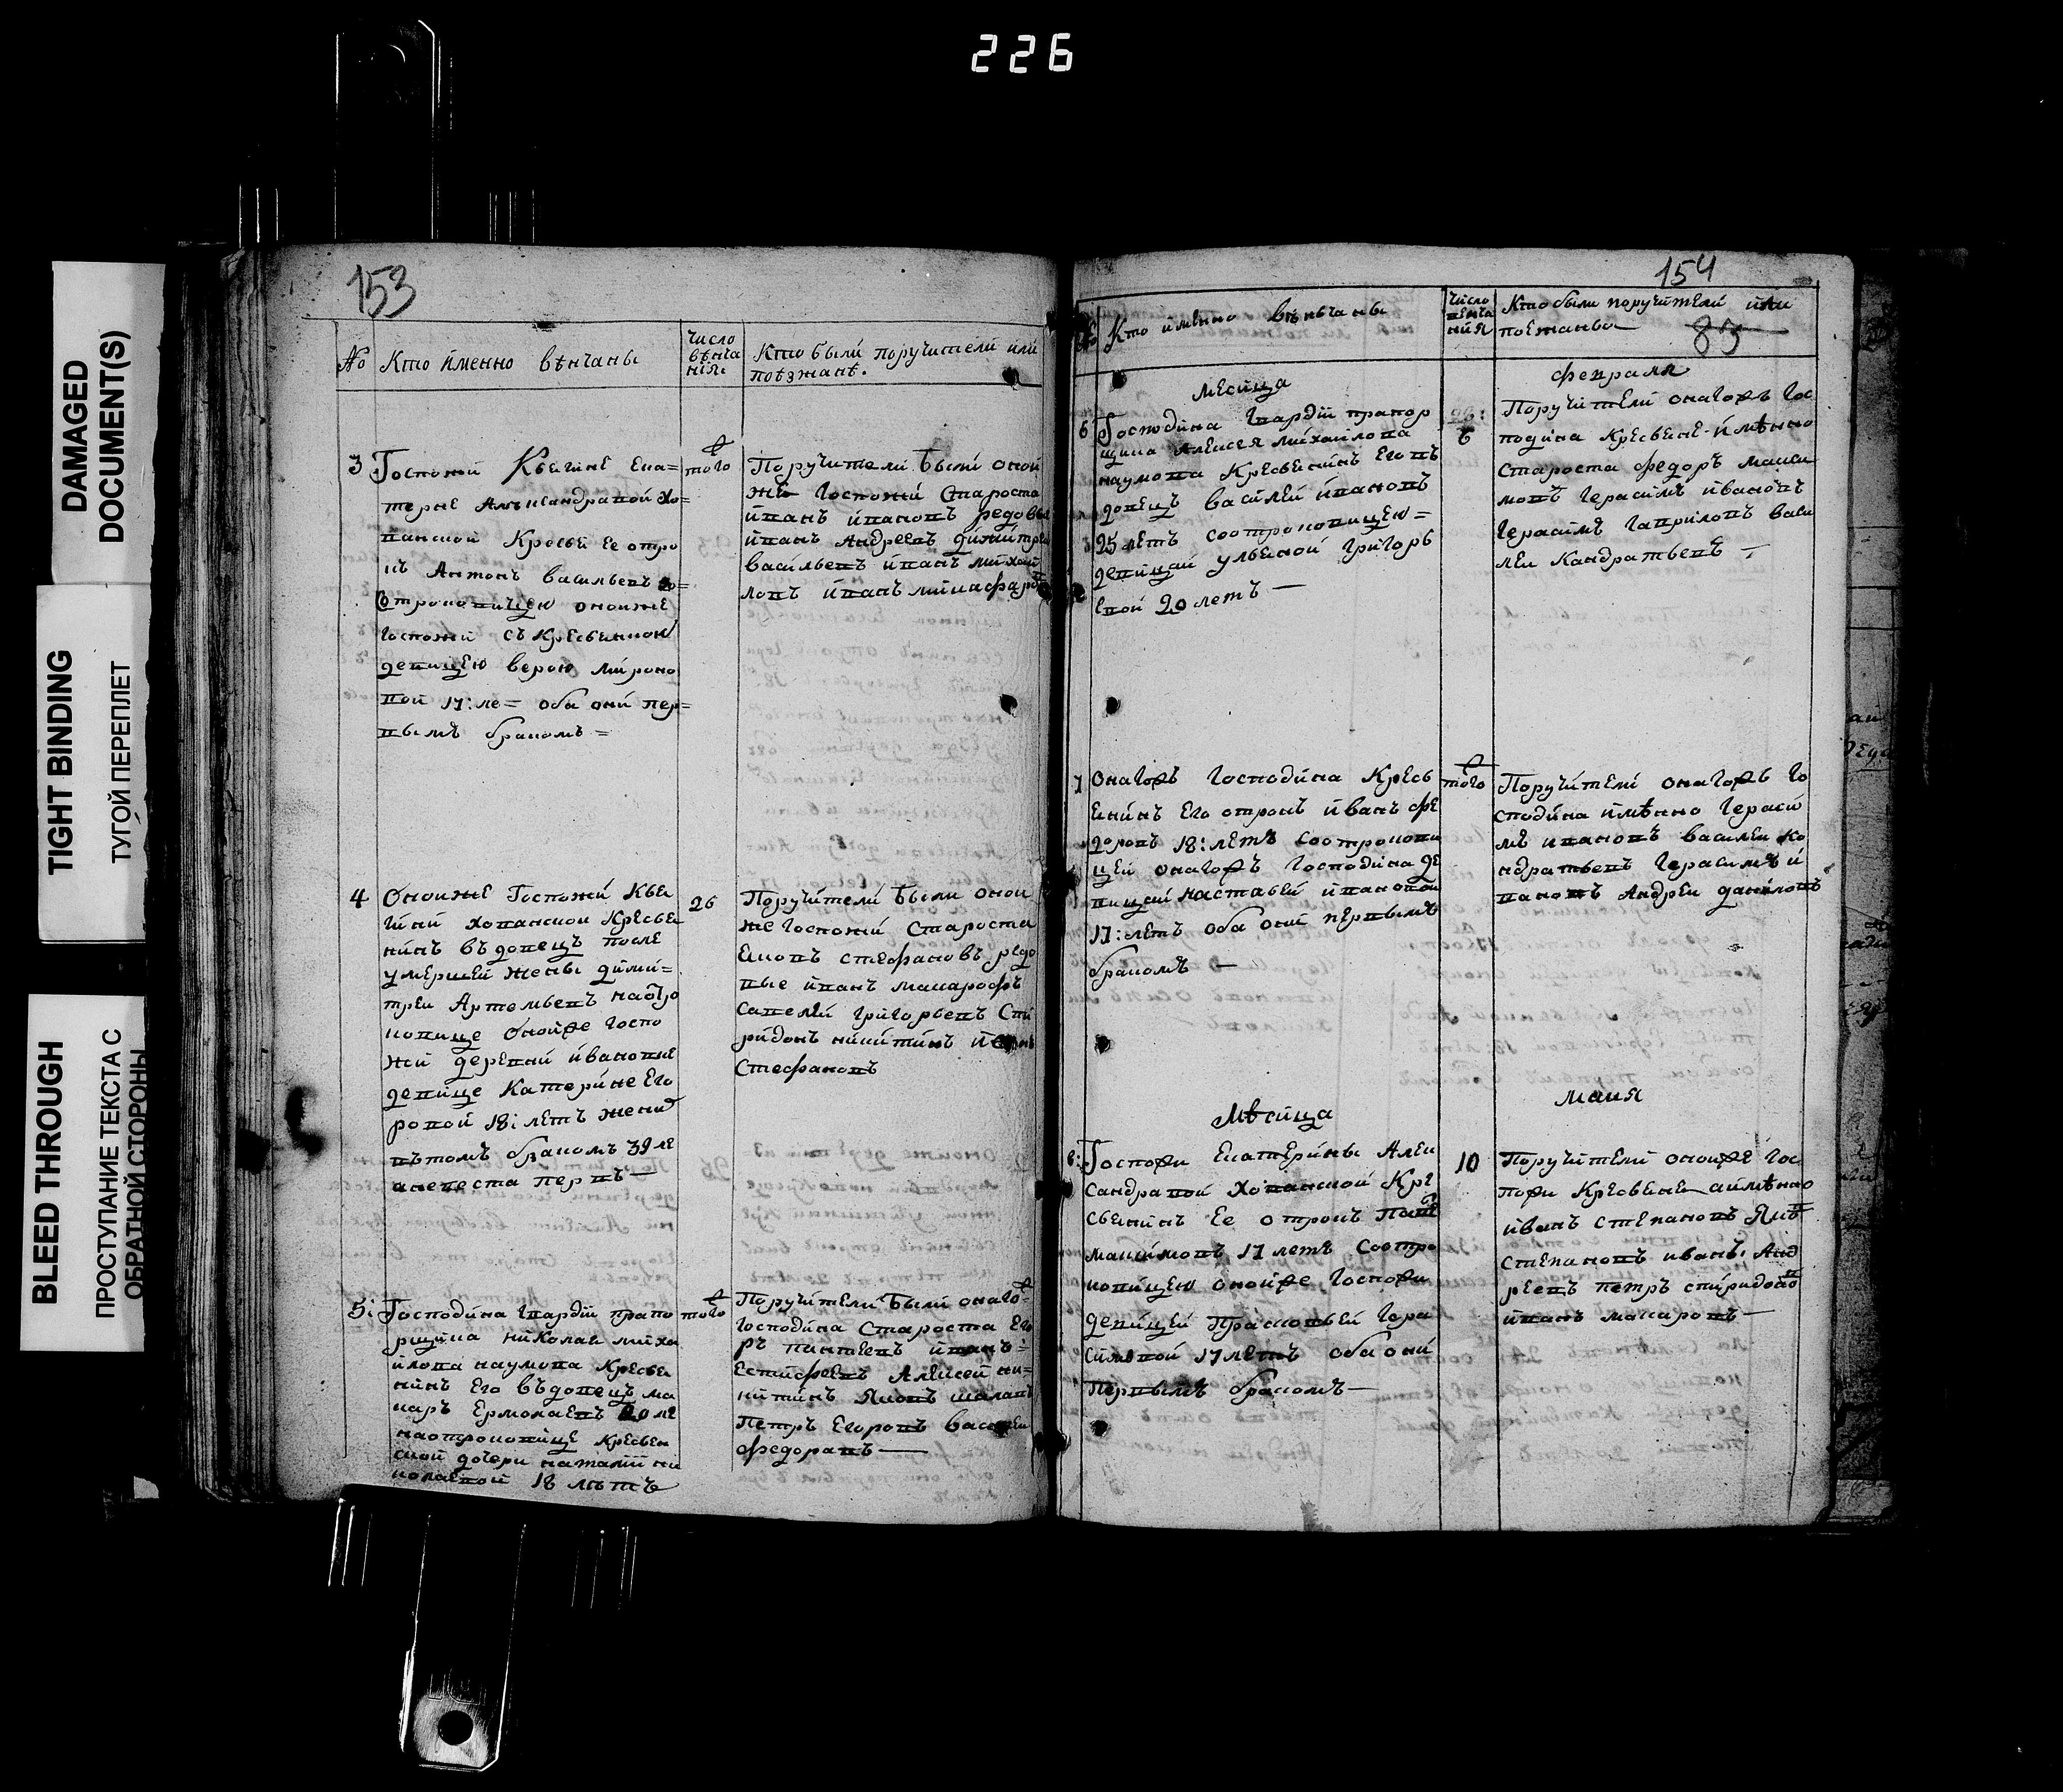 226
DAMAGED
DOCUMENT(S)
TIGHT BINDING
ТУГОЙ ПЕРЕПЛЕТ
BLEED THROUGH
ПРОСТУПАНИЕ ТЕКСТА С
ОБРАТНОЙ СТОРОНЫ
153
№ Кто именно вѣнчаны
число
вѣнча
нія
Кто были поручители или
поѣзжанѣ.
3 Госпожи Кнегине Ека=
терне Алѣксандравой хо=
ванской Кресьен ее отро
къ Антонъ васильевъ
Сотроковицею оноиже
госпожи съ Кресьенкои
девицею верою мироно
вой 17: ле= оба они пер=
вымъ бракомъ =
того
Поручители были оной
же Госпожи Староста
иванъ ивановъ редовые
иванъ Андреевъ димитри
васильевъ иванъ михаи
ловъ иванъ
4 Оноиже Госпожи Кне
гини хованскои Кресьен
нинъ въдовецъ после
умершей жены дими=
треи Артемьевъ наотро
ковице оноиже госпо
жи деревни ивановке
девице Катерине Его
ровой 18: летъ жених
въторомъ бракомъ 39 ле
аневеста первъ —
26
Поручители были оной
же госпожи Староста
Стефановъ редо
вые иванъ макарофъ
Савелей григорьевъ Спи
ридонъ никитинъ
Стефановъ
5: Господина гвардіи прапо
рщика николаи миха
илова наумова Кресьен
нинъ Его въдовецъ ма
каръ Ермолаевъ 20 ле
наотроковице кресьен
ской дочери наталіи ни
колаевой 18 лѣтъ
того
Поручители были онаго=
Господина Староста Его
ръ иванъ=
Естифеевъ Алексей ни=
китинъ Яковъ
Петръ Егоровъ василеи
федоравъ —
154
Кто именно вѣнчаны
Число
венча
нія
Кто были поручители или
поежаньв
83
месица
февраля
6 Господина гвардіи прапор
щика Алексея михаилова
наумова Кресьенинъ Его въ
довецъ василеи ивановъ
25 летъ соотроковицею=
девицей ульеной григорь
евой 20 летъ —
6
Поручители онагожъ Гос
подина Кресьене имѣнно
староста федоръ макси
мовъ герасимъ ивановъ
герасимъ гавриловъ васи
леи Кандратьевъ —
7 Онагожъ господина Кресь
енинъ Его отрокъ иванъ фе
доровъ 18: летъ соотрокови
цей онагожъ Господина де
вицей настасьей ивановой
17: летъ оба они первымъ
бракомъ —
того
Поручители онагожъ Го
сподина имѣнно Гераси
мъ ивановъ василеи ко
ндратьевъ Герасимъ и
вановъ Андреи даниловъ
Мѣсица
маия
8: Госпожи Екатерины Алек
сандравой Хованской Кре
сьенинъ Ее отрокъ
макимовъ 17 летъ соотро
ковицею оноиже госпожи
девицей Прасковьей Гера
симовой 17 летъ оба они
первымъ бракомъ —
10
Поручители оноиже гос
пожи Кресьене аимѣнно
иванъ степановъ
степановъ иванъ Анд
реевъ петръ спиридоновъ
иванъ макаровъ —